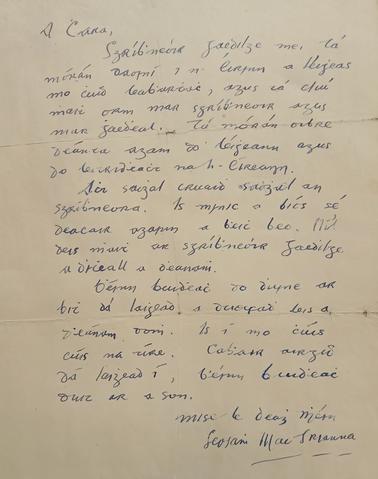 A Ċara,
Sgríḃneoir Gaeḋilge mé, tá
mórán daoiní i n-Éirinn a léiġeas
mo ċuid leaḃarṫaí, agus tá clú
maiṫ orm mar sgríḃneoir agus
mar Ġaeḋeal. Tá mórán oibre
déanta agam do léiġeann agus
do litriḋeaċt na h-Éireann.
Aċt saoġal cruaiḋ saoġal an
sgríḃneora. Is minic a ḃíos sé
deacair agam a ḃeiṫ beo. Níl
deis ṁaiṫ ag sgríḃneoir Gaeḋilge
a ḋíċeall a ḋéanaṁ.
Ḃéinn buiḋeaċ do ḋuine ar
biṫ dá laiġead a ṫiocfaḋ leis a
ḋéanaṁ doṁ. Is í mo ċúis
cúis na tíre. Caḃair airgid
dá laiġead í, ḃéinn buiḋeaċ
duit ar a son.
mise le deaġ ṁéin
Seosaṁ Mac Grianna